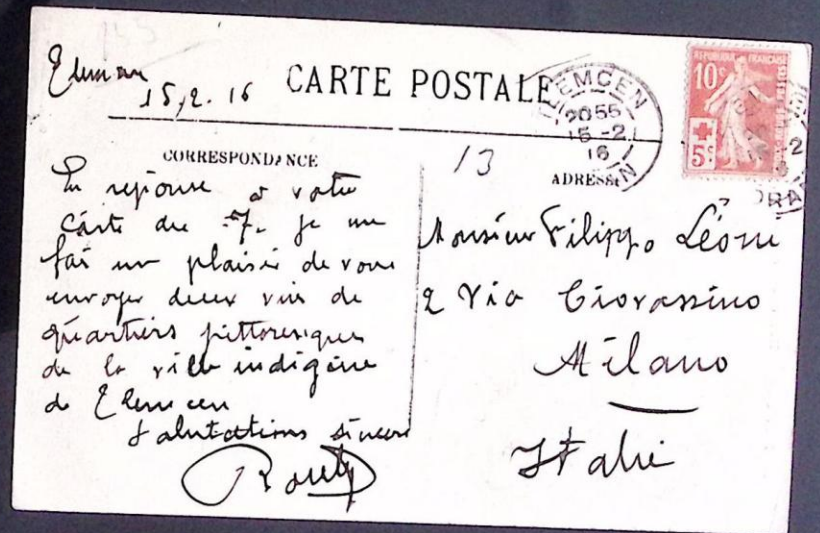 Tlemcen
15,2.16
CARTE POSTALE
TLEMCEN
2055
15-2
16
ORAN
REPUBLIQUE FRANCAISE
10c
5c
CORRESPONDANCE
13
ADRESSE
En réponse à votre
Carte du 7. je me
fais un plaisir de vous
envoyer deux vues de
quartiers pittoresques
de la ville indigène
de Tlemcen
Salutations sincères
Monsieur Filippo Léone
2 Via
Milano
Italie